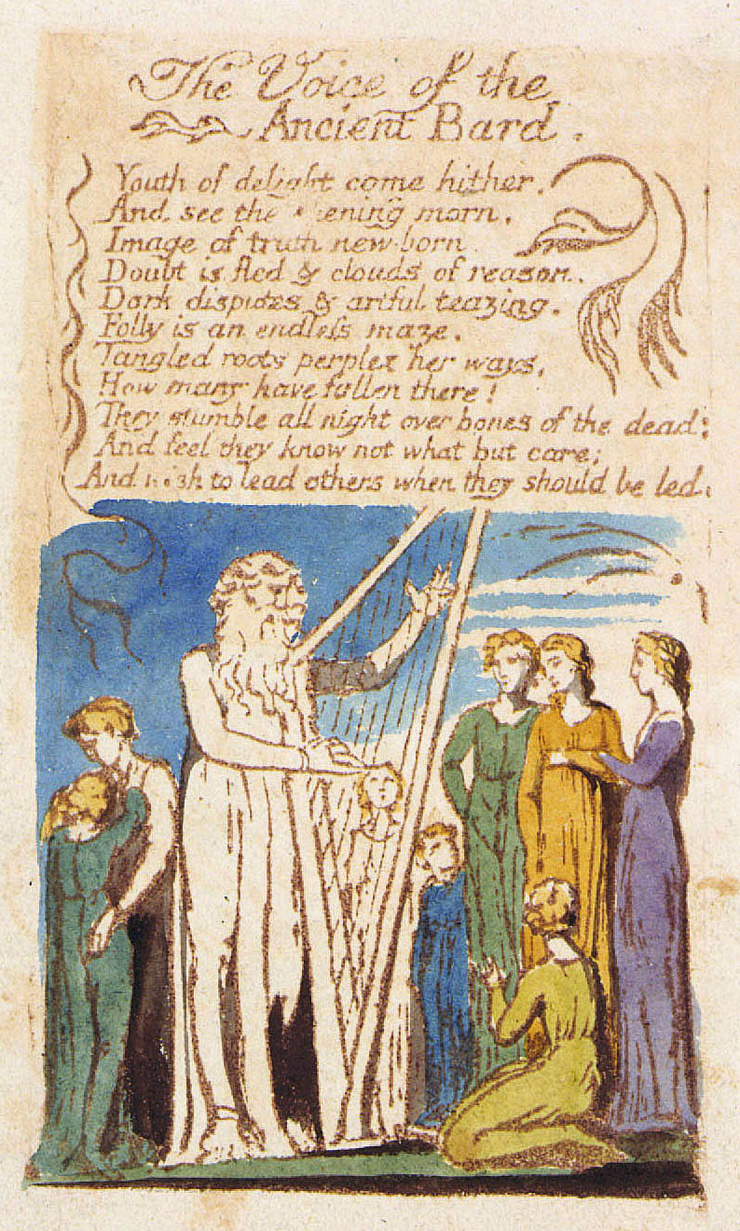 The Voice of the
Ancient Bard.
Youth of delight come hither.
And see the ening morn.
Image of truth new born
Doubt is fled & clouds of reason.
Dark disputes & artful teazing.
Folly is an endless maze.
Tangled roots perplex her ways,
How many have fallen there!
They stumble all night over bones of the dead;
And feel they know not what but care;
And wish to lead others when they should be led.